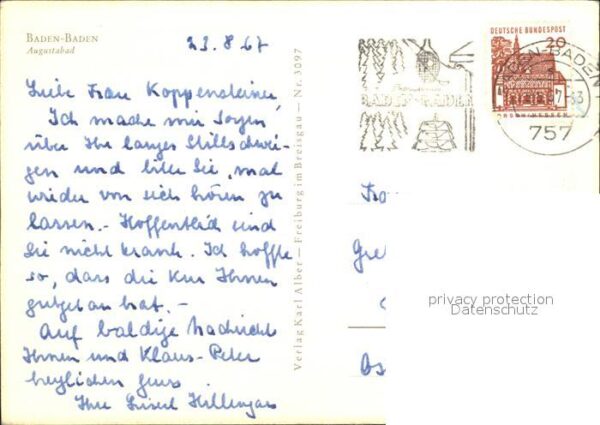 BADEN-BADEN
Augustabad
23.8.67
Liebe Frau Koppensteiner,
Ich mache mir Sorgen
über Ihr langes Stillschwei-
gen und bitte Sie, mal
wieder von sich hören zu
lassen. - Hoffentlich sind
Sie nicht krank. Ich hoffte
so, dass die Kur Ihnen
gutgetan hat. -
Auf baldige Nachricht
Ihnen und Klaus-Peter
herzlichen Gruss
Ihre Liesel
Verlag Karl Alber — Freiburg im Breisgau — Nr. 3097
BADEN-BADEN
DEUTSCHE BUNDESPOST
20
BADEN-BADEN
757
privacy protection
Datenschutz